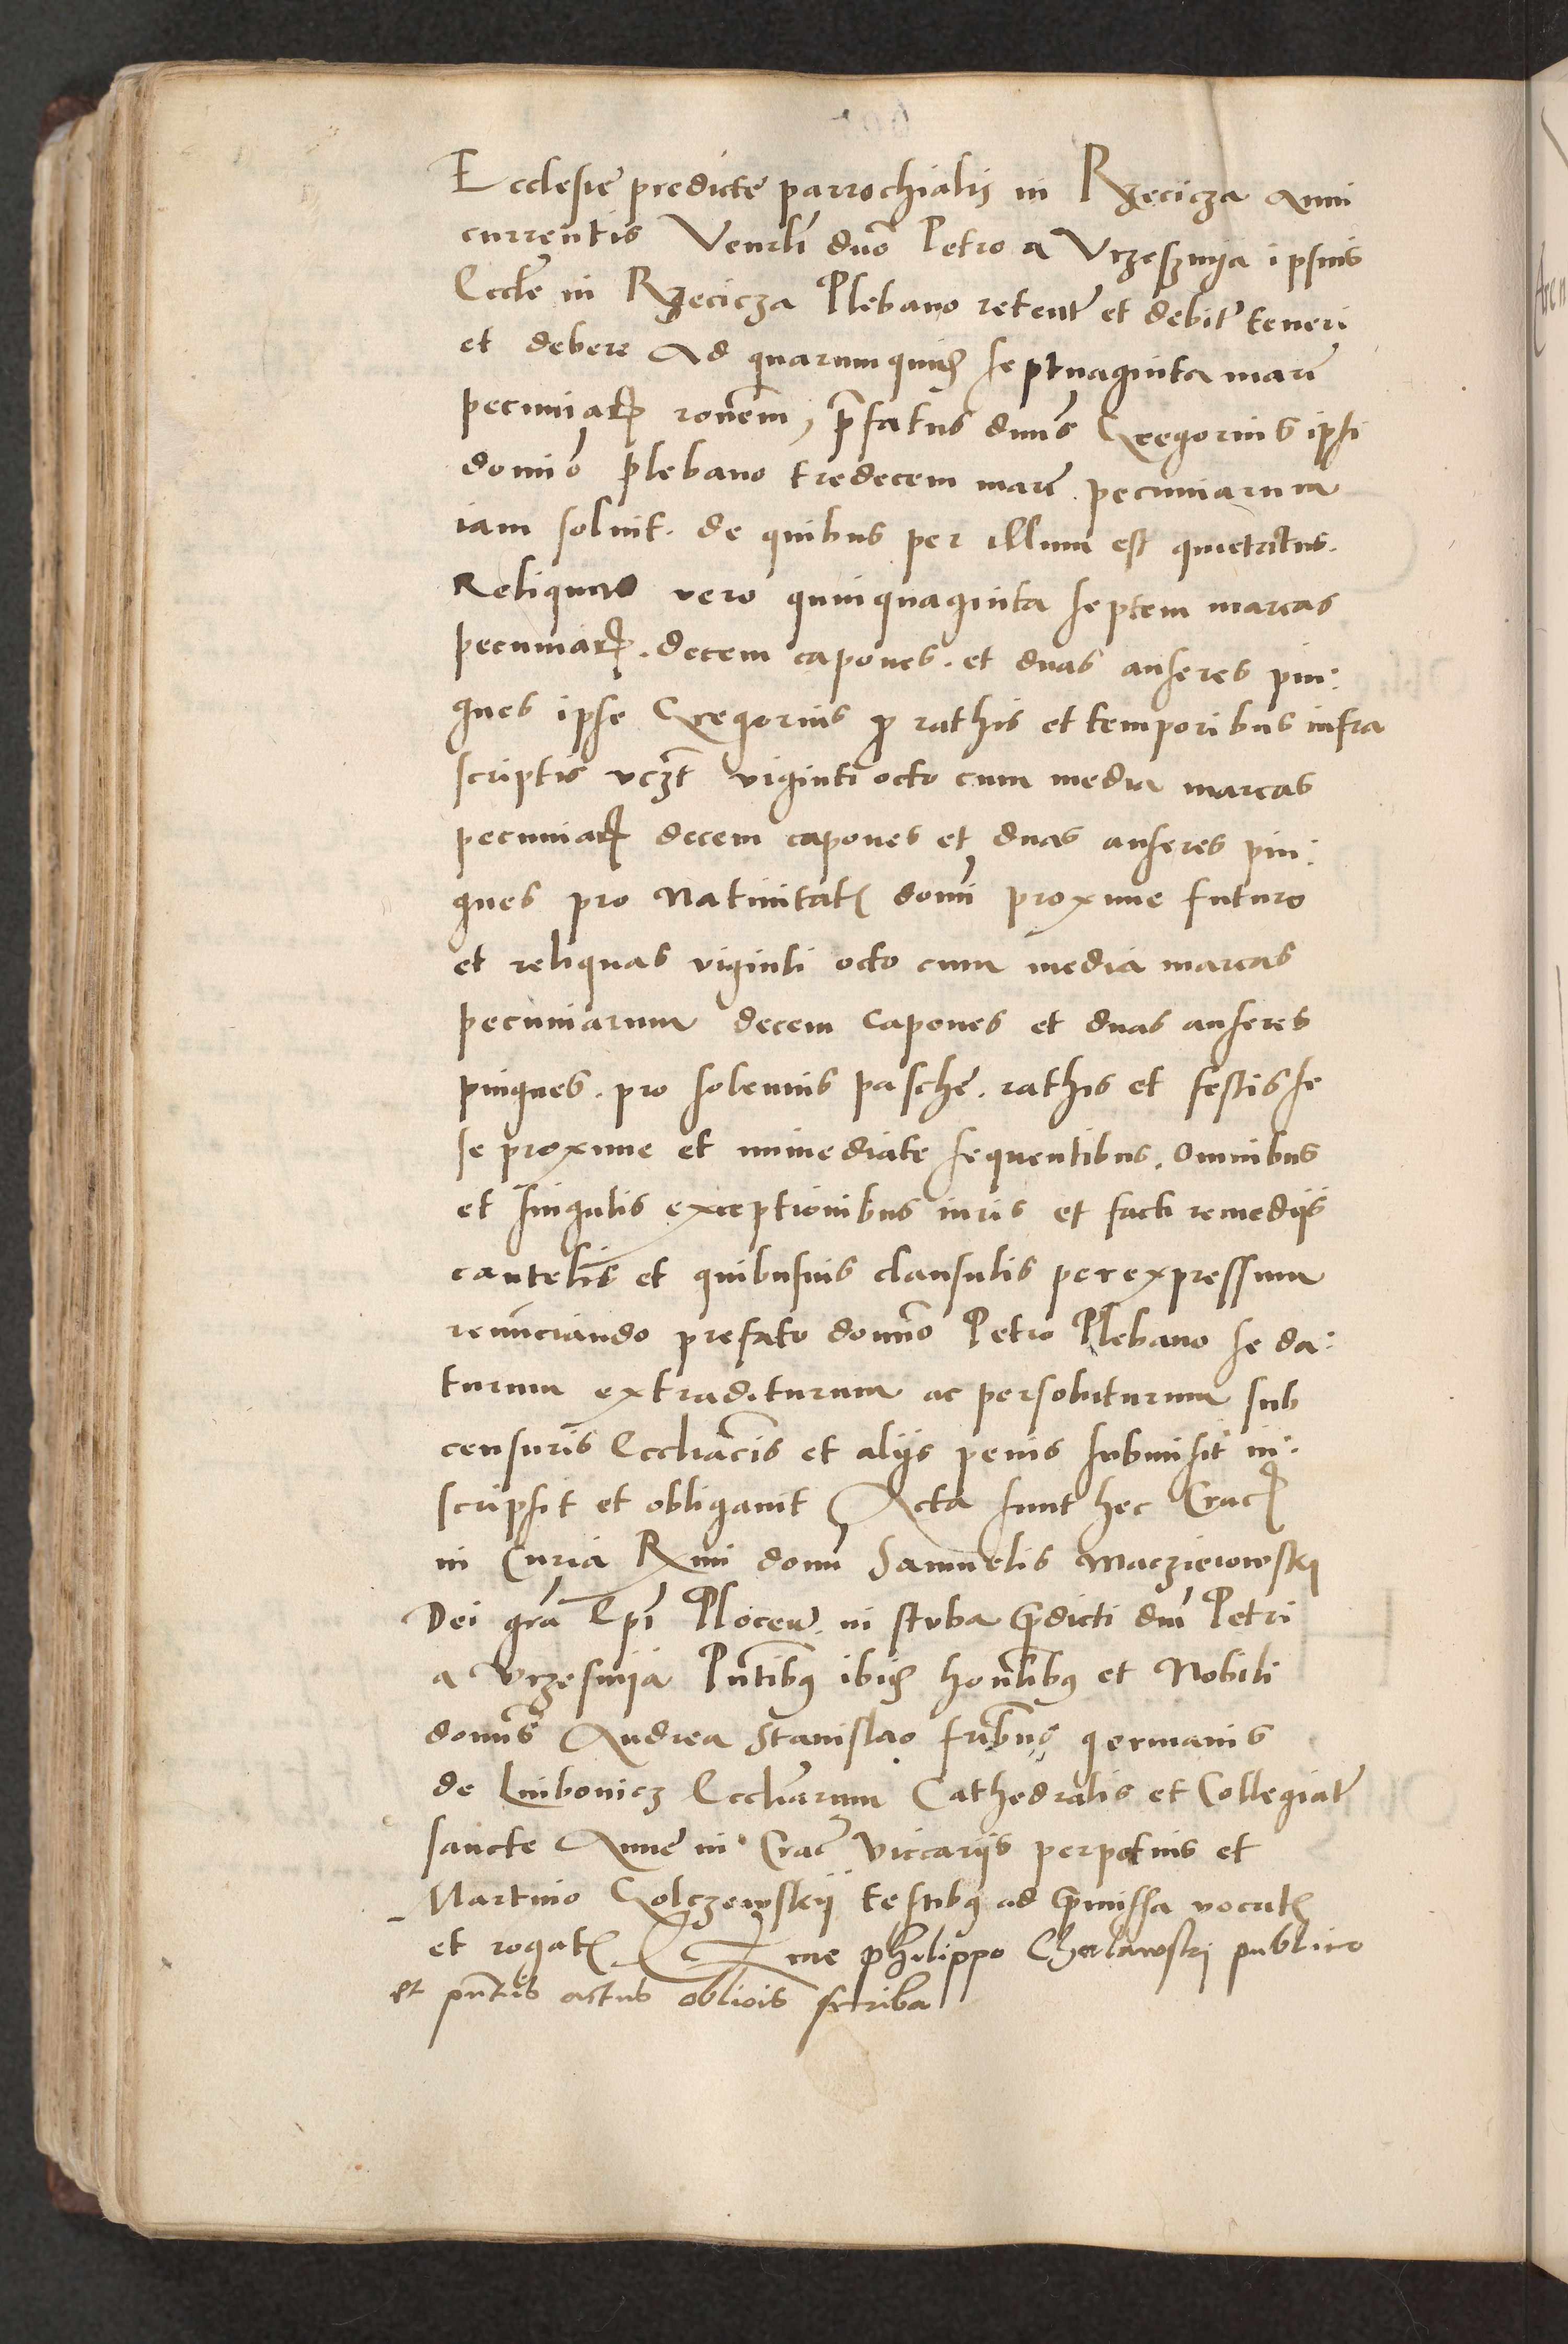 Ecclesie predicte parrochialis in Rzecicza Anni
currentis Venrli dno Petro a Vrzesznya ipsius
Eccle in Rzecicza Plebano retent et debit teneri
et debere Ad quarumquid septuaginta marc
pecuniar ronem, prefatus dnus Gregorius ipsi
domino plebano tredecem marc. pecuniarum
iam soluit. de quibus per illum est quietatus.
Reliquas vero quinquaginta septem marcas
pecuniar. decem capones. et duas anseres pin:
gues ipse Gregorius pro rathis et temporibus infra
scriptis vczt viginti octo cum media marcas
pecuniar decem capones et duas anseres pin:
gues pro Natiuitate domi proxime futuro
et reliquas viginti octo cum media marcas
pecuniarum decem capones et duas anseres
pingues. pro solennis pasche. rathis et festis se
se proxime et immediate sequentibus. Omnibus
et singulis exceptionibus iuris et facti remedijs
cautelis et quibusuis clausulis per expressum
renunciando prefato domino Petro Plebano se da:
turum extraditurum ac persoluturum sub
censuris Eccliacis et alijs penis submisit in:
scripsit et obligauit Acta sunt hec Crac
in Curia Rmi domi Samuelis Macziejowskj
Dei gra Epi Plocen. in stuba predicti dni Petri
a Vrzesnija Pntibus ibid honlibus et Nobili
domis Andrea Stanislao fribus germanis
de Luibonicz Eccliarum Cathedralis et Collegiate
sancte Anne in Crac Viccarijs perpetuis et
Martino Golczewskij testibus ad premissa vocatis
et rogatis me Philippo publico
et pntis actus oblicis scriba